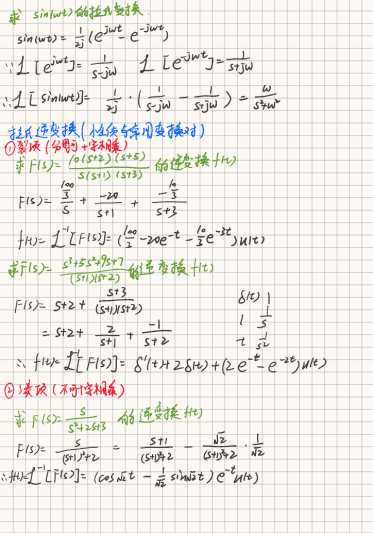 求 sin(wt)的拉氏变换.
sin(wt) = 1/2j (e^jwt - e^-jwt)
∵ L[e^jwt] = 1/(s-jw)  L[e^-jwt] = 1/(s+jw)
∴ L[sin(wt)] = 1/2j · (1/(s-jw) - 1/(s+jw)) = w/(s²+w²)
拉氏逆变换(常用变换对)
① 裂项(分母可十字相乘)
求 F(s) = 10(s+2)(s+5)/(s(s+1)(s+3)) 的逆变换 f(t)
F(s) = (100/3)/s + -20/(s+1) + (-10/3)/(s+3)
f(t) = L^-1[F(s)] = (100/3 - 20e^-t - 10/3 e^-3t)u(t)
求F(s) = (s³+5s²+9s+7)/((s+1)(s+2)) 的逆变换 f(t)
F(s) = s+2 + (s+3)/((s+1)(s+2))  δ(t) 1
= s+2 + 2/(s+1) + -1/(s+2)  1 1/s
t 1/s²
∴ f(t) = L^-1[F(s)] = δ'(t)+2δ(t)+(2e^-t - e^-2t)u(t)
② 凑项(不可十字相乘)
求 F(s) = s/(s²+2s+3) 的逆变换 f(t)
F(s) = s/((s+1)²+2) = (s+1)/((s+1)²+2) - √2/((s+1)²+2) · 1/√2
∴ f(t) = L^-1[F(s)] = (cos√2t - 1/√2 sin√2t) e^-t u(t)